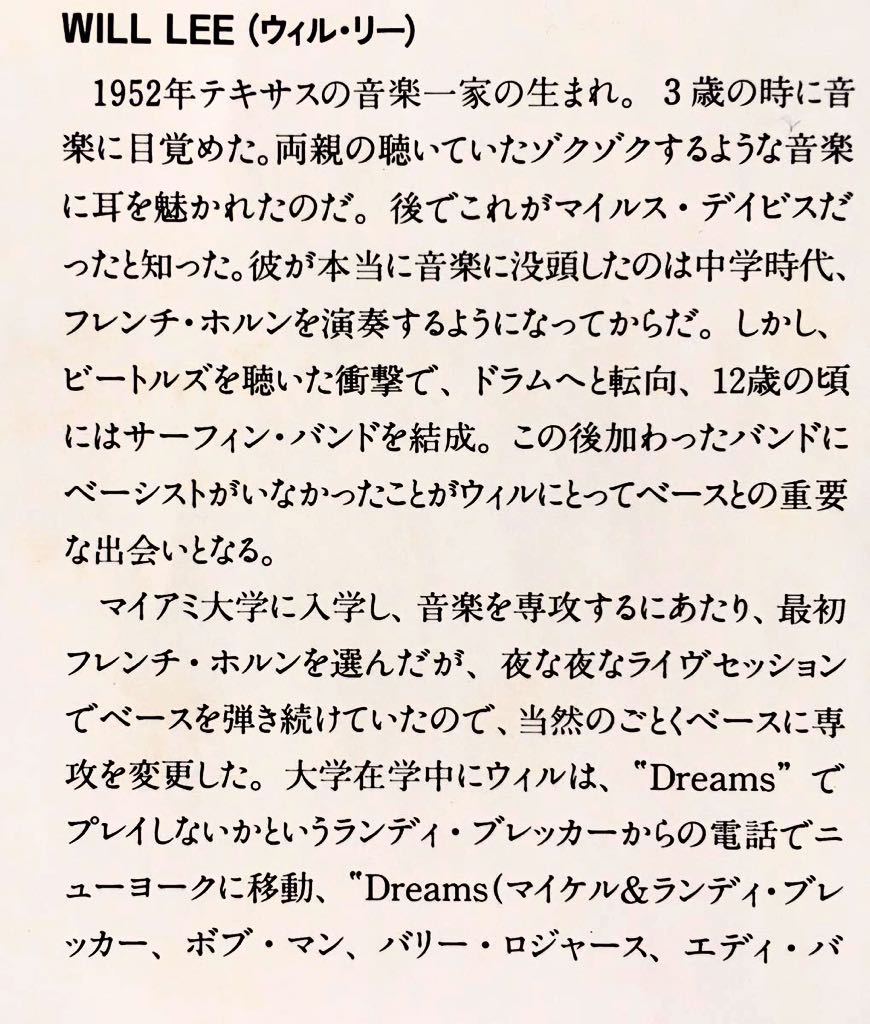 WILL LEE (ウィル・リー)
1952年テキサスの音楽一家の生まれ。3歳の時に音
楽に目覚めた。両親の聴いていたゾクゾクするような音楽
に耳を魅かれたのだ。後でこれがマイルス・デイビスだ
ったと知った。彼が本当に音楽に没頭したのは中学時代、
フレンチ・ホルンを演奏するようになってからだ。しかし、
ビートルズを聴いた衝撃で、ドラムへと転向、12歳の頃
にはサーフィン・バンドを結成。この後加わったバンドに
ベーシストがいなかったことがウィルにとってベースとの重要
な出会いとなる。
マイアミ大学に入学し、音楽を専攻するにあたり、最初
フレンチ・ホルンを選んだが、夜な夜なライヴセッション
でベースを弾き続けていたので、当然のごとくベースに専
攻を変更した。大学在学中にウィルは、〝Dreams” で
プレイしないかというランディ・ブレッカーからの電話でニ
ューヨークに移動、〝Dreams(マイケル&ランディ・ブレ
ッカー、ボブ・マン、バリー・ロジャース、エディ・バ